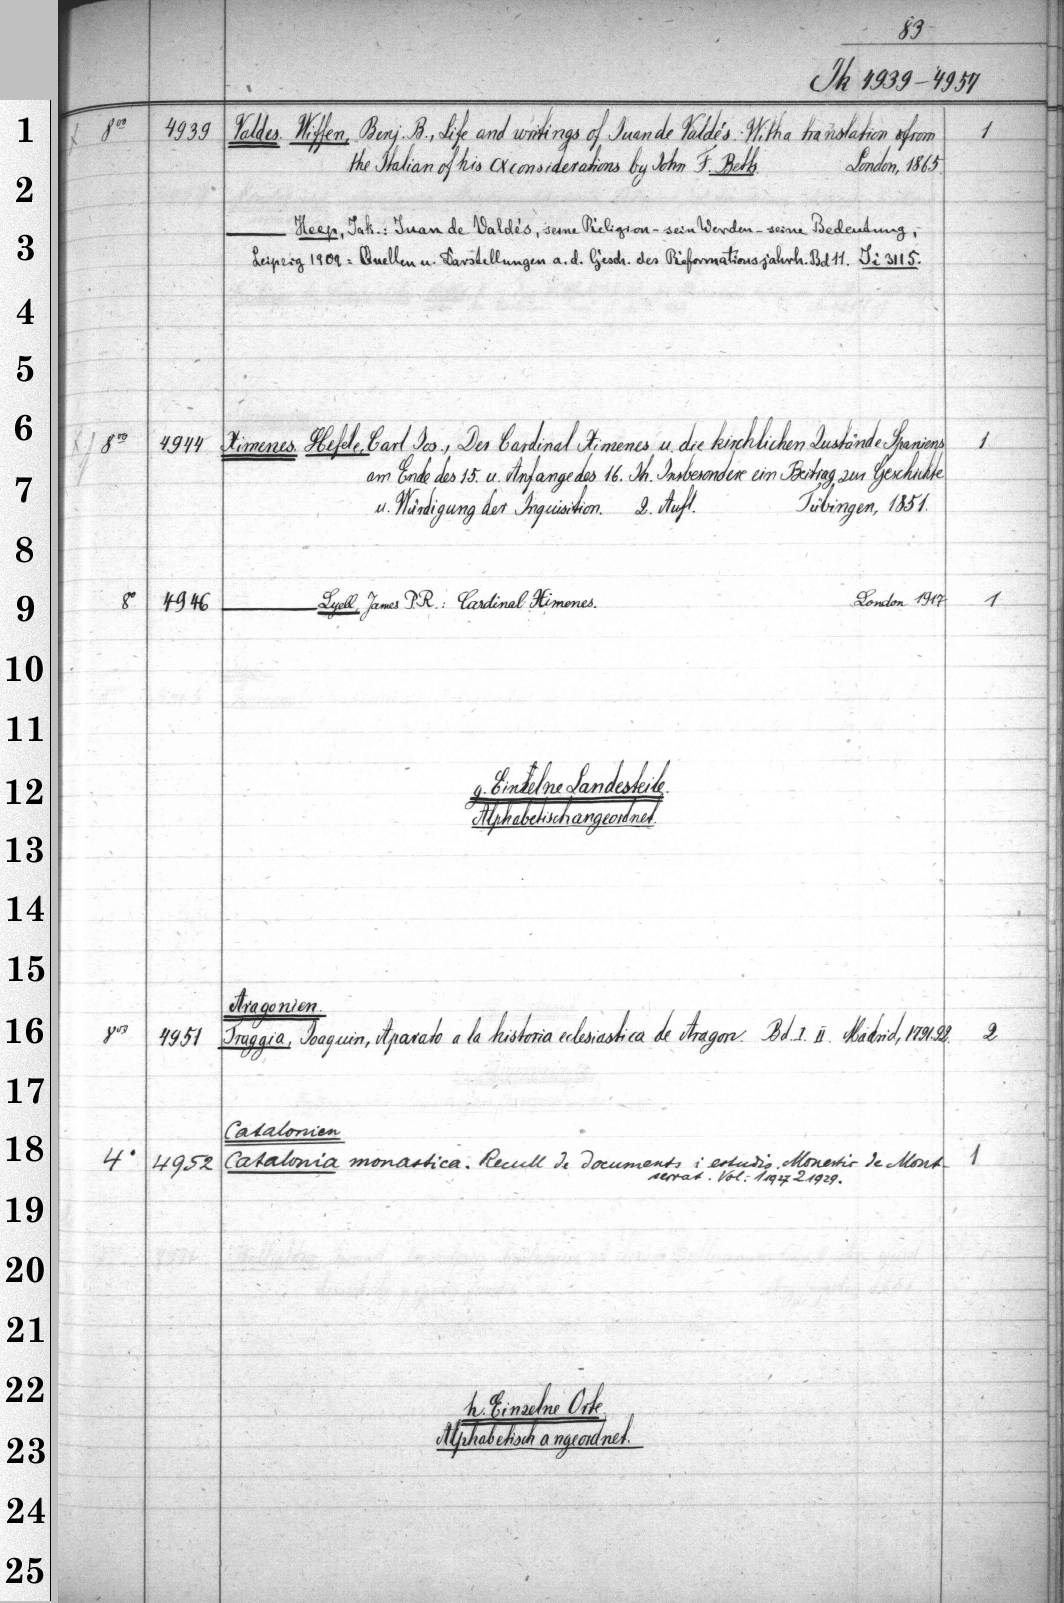 83
Ik 4939-4957
1 8vo 4939 Valdes. Wiffen, Benj. B., Life and writings of Juan de Valdés. With a translation from 1
the Italian of his CX considerations by John F. Betts. London, 1865.
2
Heep, Jak.: Juan de Valdés, seine Religion - sein Werden - seine Bedeutung,
3 Leipzig 1909 = Quellen u. Darstellungen a. d. Gesch. des Reformationsjahrh. Bd 11. Ji 3115.
4
5
6 8vo 4944 Ximenes. Hefele, Carl Jos., Der Cardinal Ximenes u. die kirchlichen Zustände Spaniens 1
am Ende des 15. u. Anfange des 16. Jh. Insbesondere ein Beitrag zur Geschichte
7 u. Würdigung der Inquisition. 2. Aufl. Tübingen, 1851.
8
9 8° 4946 Lyell, James P.R.: Cardinal Ximenes. London 1917 1
10
11
12 g. Einzelne Landesteile.
Alphabetisch angeordnet.
13
14
15
Aragonien.
16 8vo 4951 Traggia, Joaquin, Aparato a la historia eclesiastica de Aragon. Bd. I. II Madrid, 1791.92. 2
17
Catalonien
18 4° 4952 Catalonia monastica. Recull de documents i estudis. Monestir de Mont- 1
serrat. Vol: 1 1927 2 1929.
19
20
21
22 h. Einzelne Orte
23 Alphabetisch angeordnet.
24
25